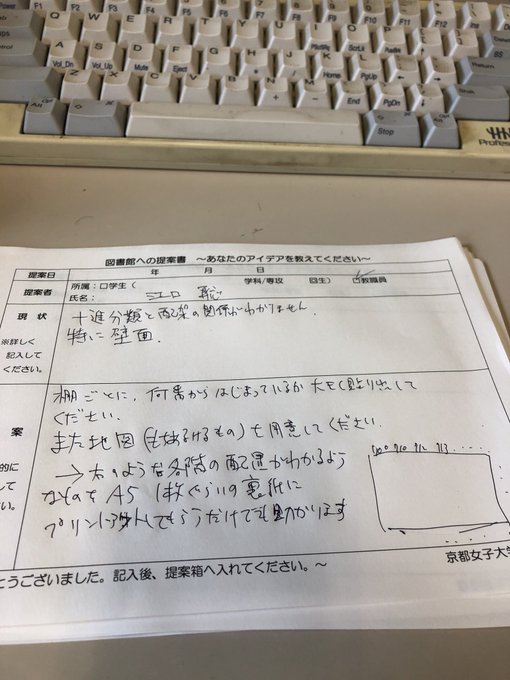 Tab Q W E R T Y U I O P
Control A S D F G H J K L
Z X C V B N M
F1 F2 F3 F4 F5 F6 F7 F8 F9 F10 F11 F12
Vol_Dn Vol_Up Mute Eject
PSc/SRq ScrLk Pause
Home PgUp
End PgDn
BS
Return
Alt
Stop
Profess
図書館への提案書 ~あなたのアイデアを教えてください~
提案日 年 月 日
提案者 所属:□学生( 学科/専攻 回生) □教職員
氏名: 江口 聡
現 状
※詳しく
記入して
ください。
十進分類と配架の関係がわかりません。
特に壁面.
案
的に
して
い。
棚ごとに、何番からはじまっているか大きく貼り出して
ください.
また地図(もちあるけるもの)も用意してください.
→ 右のような各階の配置がわかるよう
なものをA5 1枚ぐらいの裏紙に
プリントアウトしてもらうだけでも助かります
700 710 712 713
とうございました。記入後、提案箱へ入れてください。~
京都女子大学